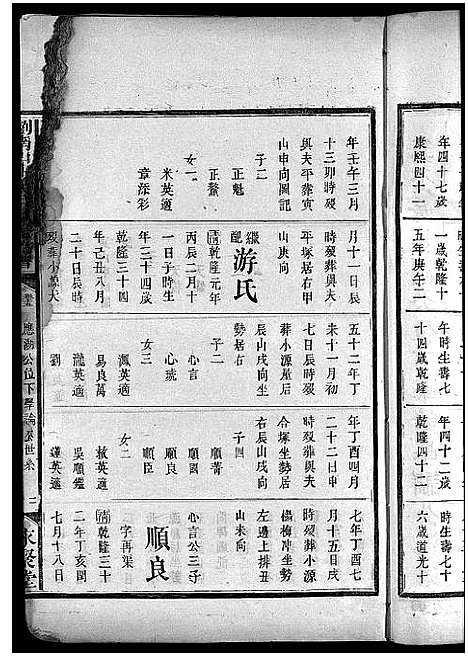 年四十七歲
康熙四十一
一歲乾隆十
五年庚午二
午時生壽七
十四歲乾隆
年四十二歲
乾隆四十二
時生壽七十
六歲道光十
年壬午三月
十三卯時歿
與夫平葬寅
山申向圖記
子二
正魁
正鰲
女一
米英適
章添彩
月十一日辰
時歿葬與夫
平塚居右甲
山庚向
繼配
游氏
清乾隆元年
丙辰二月十
一日子時生
年三十四歲
乾隆三十四
年己丑八月
二十日辰時
歿葬小源大
五十二年丁
未十一月初
七日辰時歿
葬小源屋后
辰山戌向坐
勢居右
子二
心言
心琥
女三
滿英適
易良萬
瀧英適
劉
年丁酉四月
二十二日申
時歿與夫
合塚坐勢居
右辰山戌向
子四
順菁
順國
順良
順臣
女二
枚英適
吳順鑑
鍾英適
七年丁酉七
月十五日戌
時歿葬小源
楊梅冲坐勢
左邊上排丑
山未向
心言公三子
順良
字再渠
清乾隆四十
二年丁亥閏
七月十八日
應湖公位下學論房世系
永聚堂